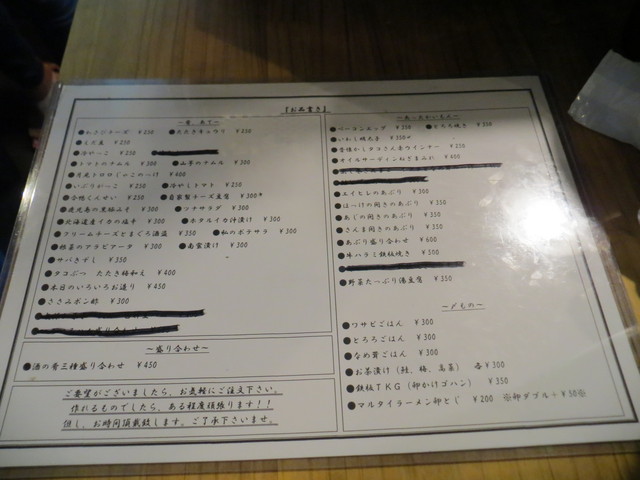 『お品書き』
～肴 あて～
●わさびチーズ ¥250 ●たたきキュウリ ¥250
●えだ豆 ¥250
●冷やっこ ¥250
●トマトのナムル ¥300 ●山芋のナムル ¥300
●月見トロロ ¥400
●いぶりがっこ ¥250 ●冷やしトマト ¥250
●合鴨くんせい ¥250 ●自家製チーズ豆腐 ¥300
¥300 ●ツナサラダ ¥300
●北海道産イカの塩辛 ¥300 ●ホタルイカ沖漬け ¥300
●クリームチーズとまぐろ酒盗 ¥350 ●私のポテサラ ¥300
●根菜のアラビアータ ¥300 ●南蛮漬け ¥300
●サバきずし ¥350
●タコぶつ たたき梅和え ¥400
●本日のいろいろお造り ¥450
●ささみポン酢 ¥300
～盛り合わせ～
●酒の肴三種盛り合わせ ¥450
ご要望がございましたら、お気軽にご注文下さい。
作れるものでしたら、ある程度頑張ります！！
但し、お時間頂戴致します。ご了承下さいませ。
～あったかいもん～
●ベーコンエッグ ¥250 ●とろろ焼き ¥350
●いわし明太子 ¥350
●昔懐かしタコさん赤ウインナー ¥250
●オイルサーディンねぎまみれ ¥400
●エイヒレのあぶり ¥300
●ほっけの開きのあぶり ¥350
●あじの開きのあぶり ¥350
●さんま開きのあぶり ¥350
●あぶり盛り合わせ ¥600
●牛ハラミ鉄板焼き ¥500
●野菜たっぷり湯豆腐 ¥350
～〆もの～
●ワサビごはん ¥300
●とろろごはん ¥300
●なめ茸ごはん ¥300
●お茶漬け（鮭、梅、高菜） 各¥300
●鉄板TKG（卵かけゴハン） ¥350
●マルタイラーメン卵とじ ¥200 ※卵ダブル＋¥50※